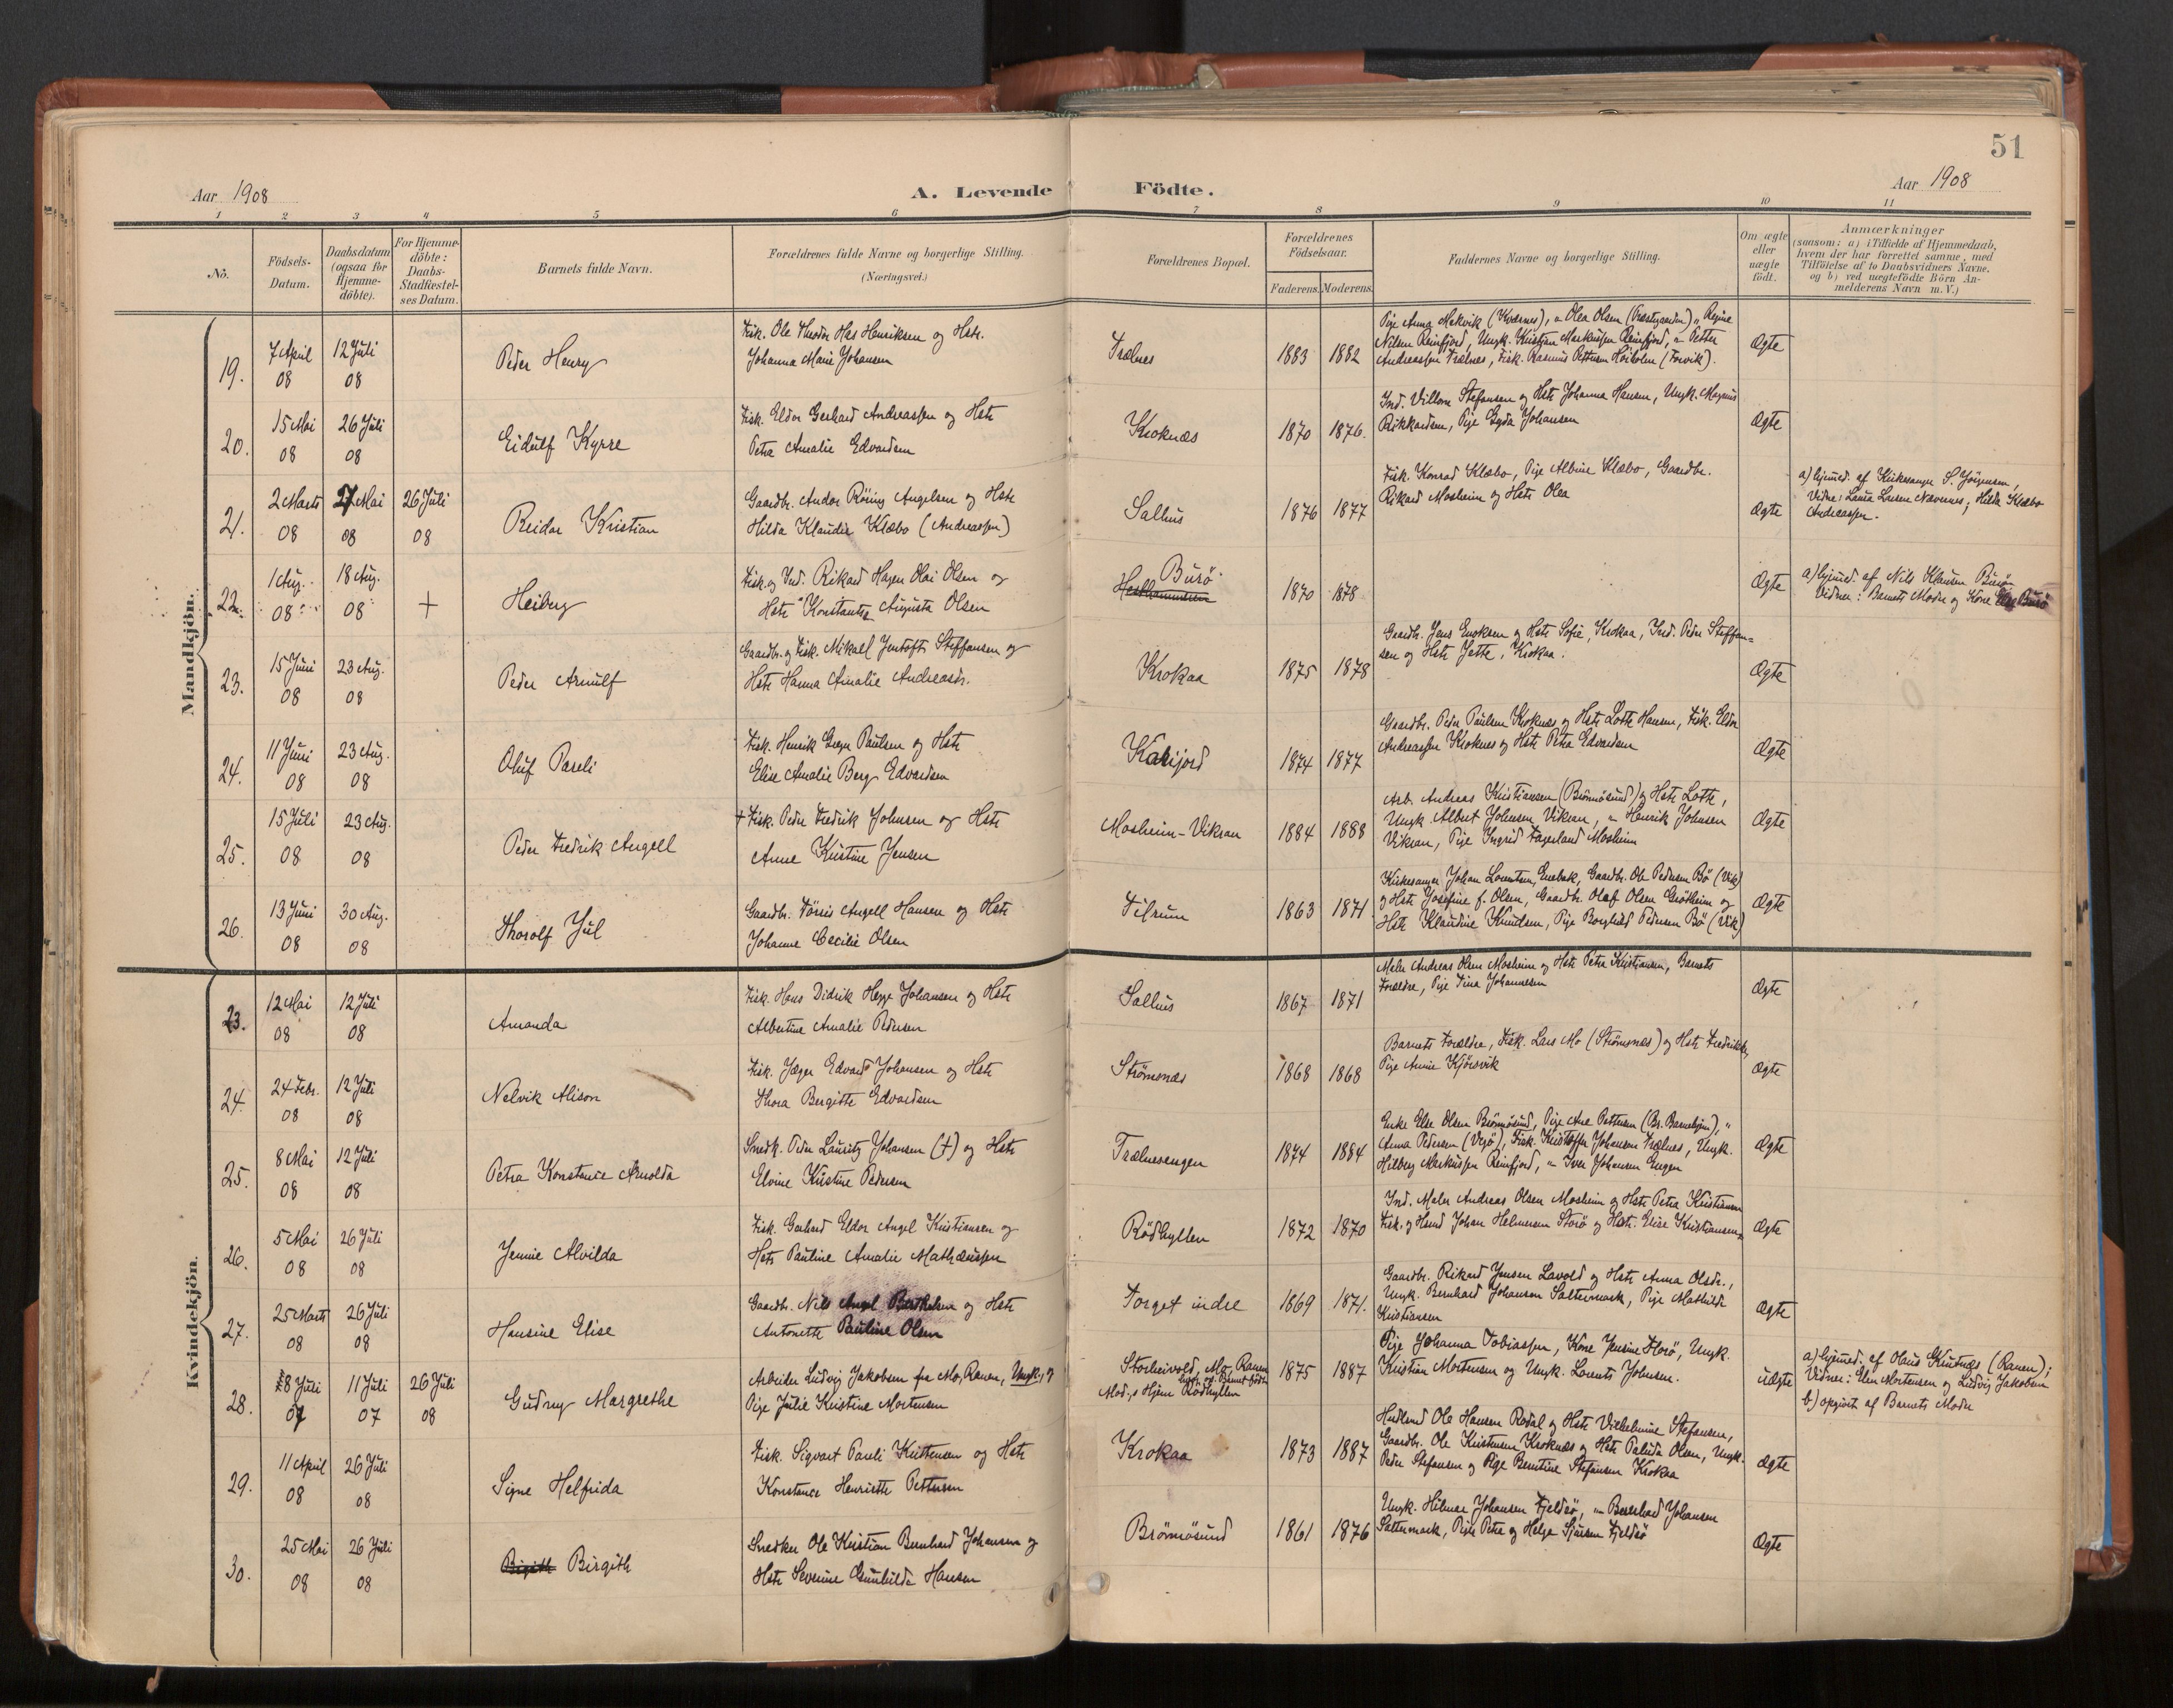 51
Aar 1908
A. Levende Födte.
Aar 1908
1 2 3 4 5 6 7 8 9 10 11
No.
Födsels-
Datum.
Daabsdatum
(ogsaa for
Hjemme-
döbte).
For Hjemme-
döbte:
Daabs-
Stadfæstel-
ses Datum.
Barnets fulde Navn.
Forældrenes fulde Navne og borgerlige Stilling.
(Næringsvei.)
Forældrenes Bopæl.
Forældrenes
Födselsaar.
Faderens. Moderens.
Faddernes Navne og borgerlige Stilling.
Om ægte
eller
uægte
födt.
Anmærkninger
(saasom: a) i Tilfælde af Hjemmedaab,
hvem der har forrettet samme, med
Tilföielse af to Daabsvidners Navne,
og b) ved uægtefödte Börn An-
melderens Navn m. V.)
Mandkjön.
19.
7 April
08
12 Juli
08
Peder Henry
Fisk. Ole Theodor Has Henriksen og Hstr.
Johanna Marie Johansen
Trælnes
1883 1882
Pige Anna Mekvik (Kværnes), " Olea Olsen (Præstgaarden) " Regine
Nilsen Reinfjord, Ungk. Kristian Markussen Reinfjord, " Petter
Andreassen Trælnes, Fisk. Rasmus Pettersen Höiholm (Torvik).
Ægte
20.
15 Mai
08
26 Juli
08
Eidulf Kyrre
Fisk. Eldor Gerhard Andreassen og Hstr
Petra Amalie Edvardsen
Kroknæs
1870 1876.
Ind. Villom Stefansen og Hstr Johanna Hansen, Ungk. Magnus
Rikkardsen, Pige Gyda Johansen
Ægte
21.
2 Marts
08
27 Mai
08
26 Juli
08
Reidar Kristian
Gaardbr. Andor Röring Angelsen og Hstr
Hilda Klaudie Klæbo (Andreassen)
Salhus
1876 1877
Fisk. Konrad Klæbo, Pige Albine Klæbo, Gaardbr.
Rikard Mosheim og Hstr Olea
Ægte
a) hjemmed. af Kirkesanger S. Jörgensen,
Vidne: Laura Larsen Nævernes; Hilda Klæbo
Andreassen.
22.
1 Aug.
08
18 Aug.
08
+
Heiberg
Fisk. og Ind. Rikard Hagen Olai Olsen og
Hstr Konstantse Augusta Olsen
Burö
1870 1878
Ægte
a) hjemmed. af Nils Klausen Burö
Vidner: Barnets Moder og Kone Else Burö
23.
15 Juni
08
23 Aug.
08
Peder Arnulf
Gaardbr. og Fisk. Mikael Jentoft Steffansen og
Hstr Hanna Amalie Andreasdr.
Krokaa
1875 1878
Gaardbr. Jens Enoksen og Hstr Sofie, Krokaa, Ind. Peder Steffan-
sen og Hstr Jette, Krokaa.
Ægte
24.
11 Juni
08
23 Aug.
08
Oluf Pareli
Fisk. Henrik Greger Paulsen og Hstr
Elise Amalie Berg Edvardsen
Karijord
1874 1877
Gaardbr. Peder Paulsen Kroknæs og Hstr Lotte Hansen, Fisk. Eldor
Andreassen Kroknes og Hstr Petra Edvardsen
Ægte
25.
15 Juli
08
23 Aug.
08
Peder Fredrik Angell
+ Fisk. Peder Fredrik Johnsen og Hstr
Anne Kristine Jensen
Mosheim-Vikran
1884 1888
Arb. Andreas Kristiansen (Brönnösund) og Hstr Lotte,
Ungk. Albert Johnsen Vikran, " Henrik Johnsen
Vikran, Pige Ingrid Fagerland Mosheim
Ægte
26.
13 Juni
08
30 Aug.
08
Thorolf Jul
Gaardbr. Törris Angell Hansen og Hstr
Johanne Cecilie Olsen
Tilrum
1863 1871
Kirkesanger Johan Lorentsen, Enebak, Gaardbr. Ole Pedersen Bö (Vik)
og Hstr Josefine f. Olsen, Gaardbr. Olaf Olsen Gröttheim og
Hstr Klaudine Knudsen, Pige Borghild Pedersen Bö (Vik)
Ægte
Kvindekjön.
23.
12 Mai
08
12 Juli
08
Amanda
Fisk. Hans Didrik Hegge Johansen og Hstr
Albertine Amalie Pedersen
Salhus
1867 1871
Maler Andreas Olsen Mosheim og Hstr Petra Kristiansen, Barnets
Forældre, Pige Tina Johannesen
Ægte
24.
24 Febr.
08
12 Juli
08
Nelvik Alison
Fisk. Jæger Edvard Johansen og Hstr
Thora Bergitte Edvardsen
Strömsnæs
1868 1868
Barnets Forældre, Fisk. Lars Mo (Strömsnæs) og Hstr Fredrikke,
Pige Annie Kjörsvik
Ægte
25.
8 Mai
08
12 Juli
08
Petra Konstance Arnolda
Snedk. Peder Lauritz Johansen (+) og Hstr
Elvine Kristine Pedersen
Trælnesengen
1874 1884
Enke Else Olsen Brönnösund, Pige Ane Pettersen (Br. Barnehjem), "
Anna Pedersen (Vegö), Fisk. Kristoffer Johansen Trælnes, Ungk.
Hilberg Markussen Reinfjord, " Iver Johansen Engen
Ægte
26.
5 Mai
08
26 Juli
08
Jennie Alvilda
Fisk. Gerhard Eldor Angel Kristiansen og
Hstr Pauline Amalie Mathæussen
Rödhyllen
1872 1870
Ind. Maler Andreas Olsen Mosheim og Hstr Petra Kristiansen
Fisk. og Hmd Johan Helmersen Storö og Hstr. Elise Kristiansen
Ægte
27.
25 Marts
08
26 Juli
08
Hansine Elise
Gaardbr. Nils Angel Bertelsen og Hstr
Antonette Pauline Olsen
Torget indre
1869 1871.
Gaardbr. Rikard Jensen Lavold og Hstr Anna Olsdr.,
Ungk. Bernhard Johansen Saltermark, Pige Mathilde
Kristiansen
Ægte
28.
8 Juni
07
11 Juli
07
26 Juli
08
Gudrug Margrethe
Arbeider Ludvig Jakobsen fra Mo, Ranen, Ungk., og
Pige Julie Kristine Mortensen
Storleivold, Mo, Ranen
Mod.s Hjem Rödhyllen
1875 1887
Pige Johanna Tobiassen, Kone Jensine Horö, Ungk.
Kristian Mortensen og Ungk. Lorents Johnsen.
uægte
a) hjemmed. af Olaus Grutnæs (Ranen);
Vidner: Elen Mortensen og Ludvig Jakobsen
b) opgivet af Barnets Moder
29.
11 April
08
26 Juli
08
Signe Helfrida
Fisk. Sigvart Pareli Kristensen og Hstr
Konstance Henriette Pettersen
Krokaa
1873 1887
Husmand Ole Hansen Rodal og Hstr Vilhelmine Stefansen,
Gaardbr. Ole Kristensen Kroknæs og Hstr Paluda Olsen, Ungk.
Peder Stefansen og Pige Berntine Stefansen Krokaa
Ægte
30.
25 Mai
08
26 Juli
08
Birgith Birgith
Snedker Ole Kristian Bernhard Johansen og
Hstr Severine Gunhilda Hansen
Brönnösund
1861 1876
Ungk. Hilmar Johansen Fjeldsö, " Bernhard Johansen
Saltermark, Pige Petra og Helga Sjursen Fjeldsö
Ægte